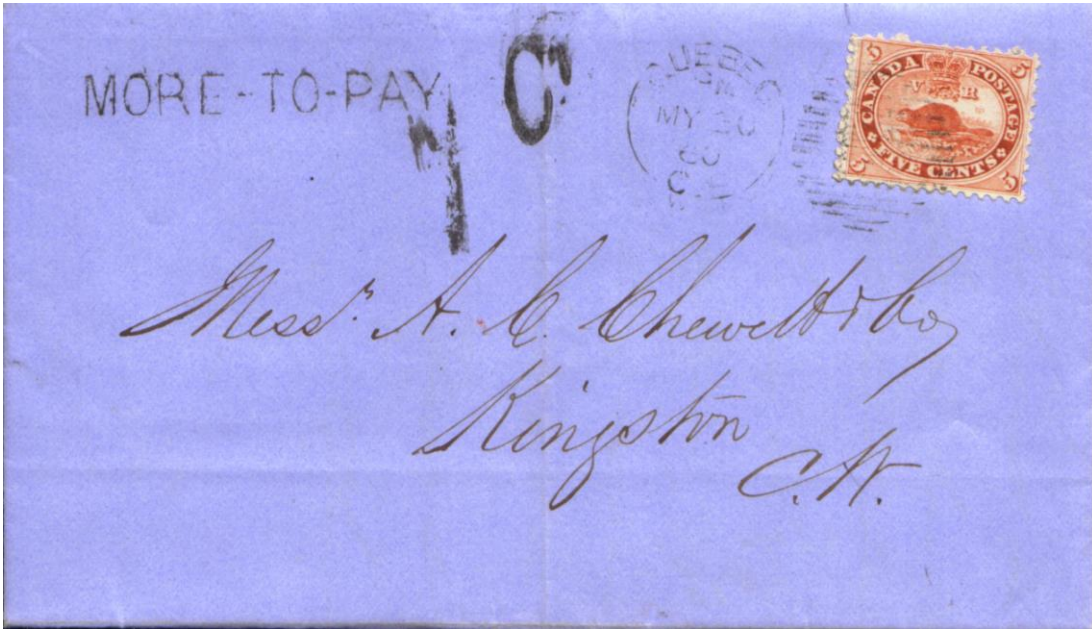 MORE-TO-PAY
7 C
QUEBEC
PM
MY 30
60
C.E.
5 5
CANADA POSTAGE
V R
FIVE CENTS
5 5
Messrs. A. C. Chewett & Co
Kingston
C.W.